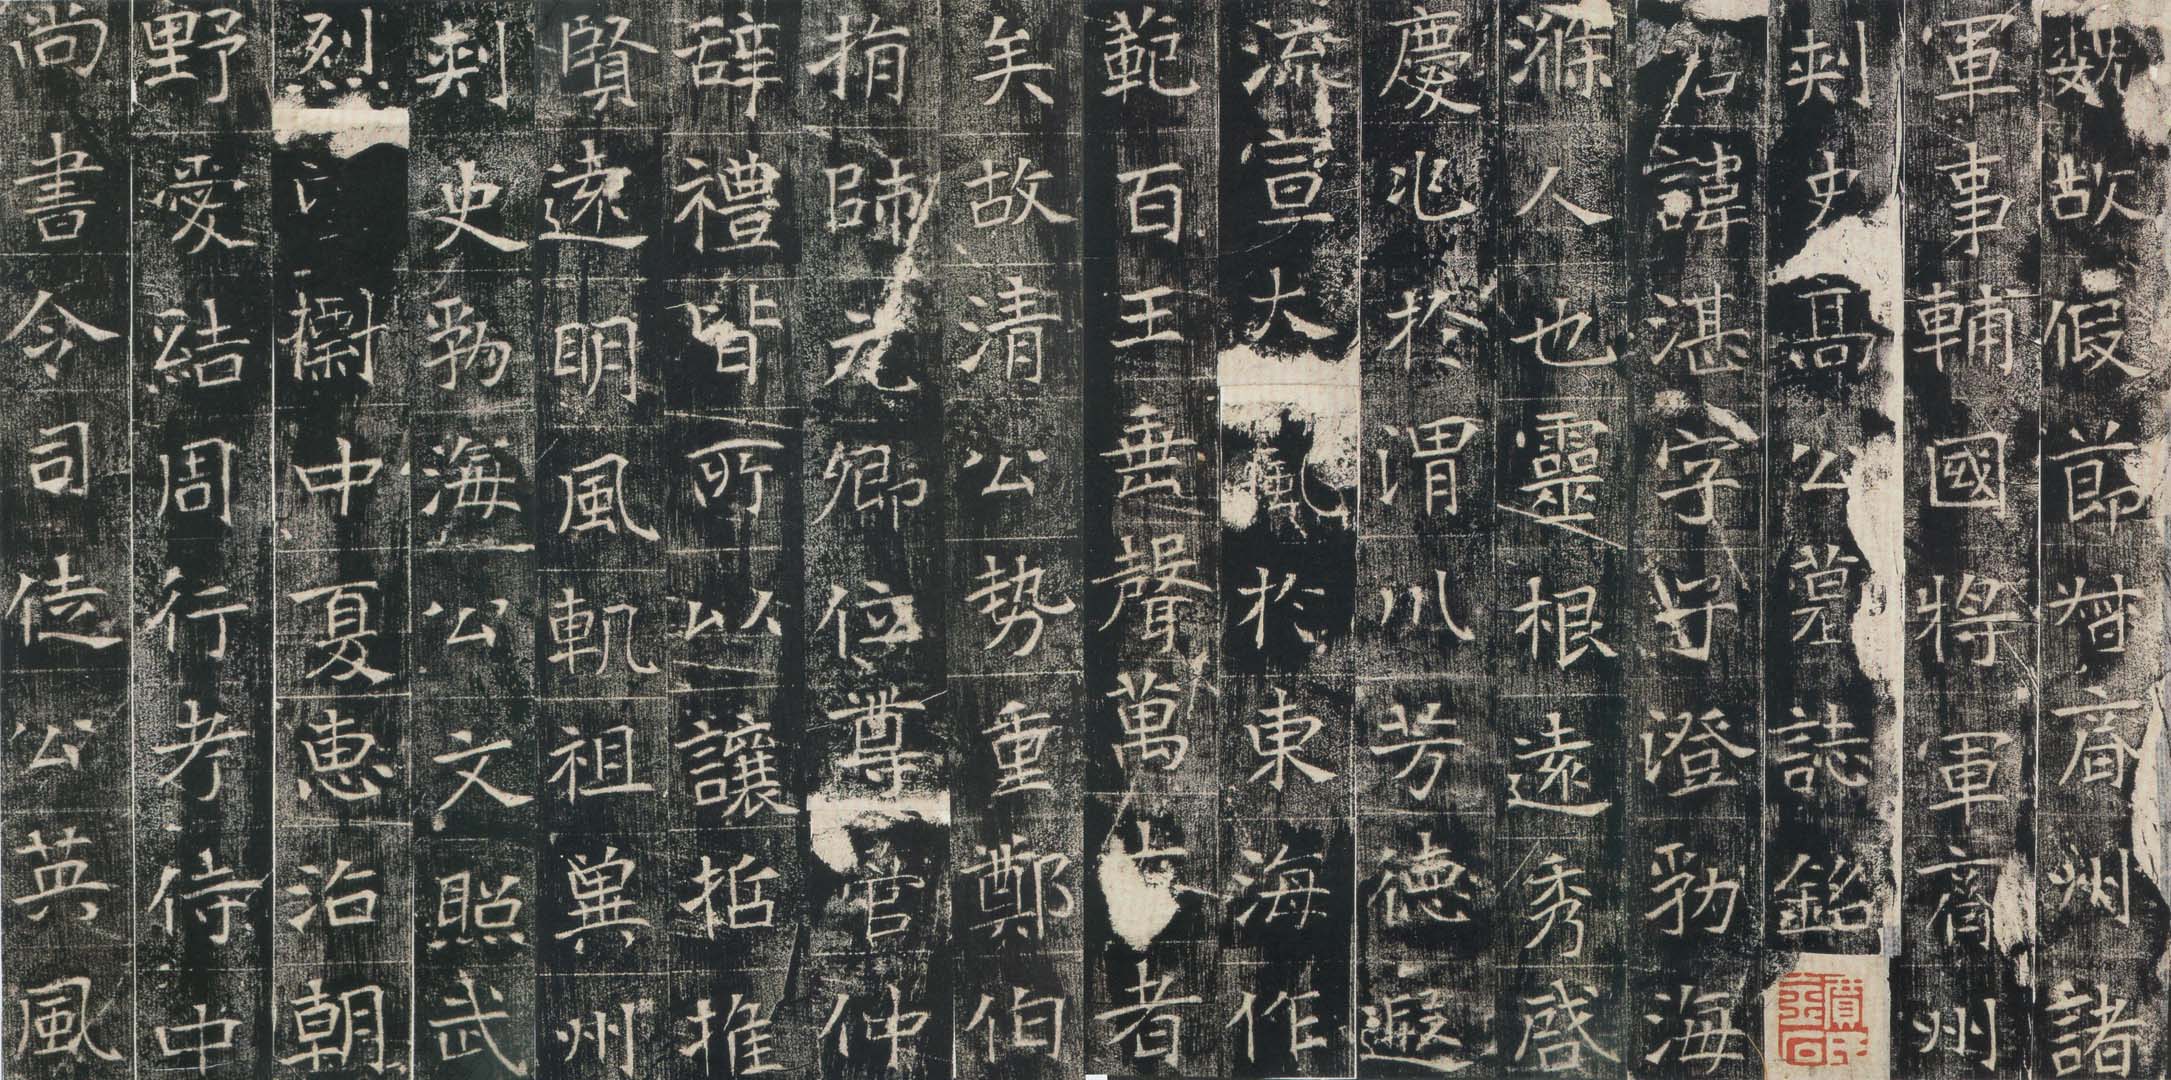 魏故假節督齊州諸
軍事輔國將軍齊州
刺史高公墓誌銘
君諱湛字子澄勃海
滌人也靈根遠秀啓
慶兆於渭川芳德遐
流宣大風於東海作
範百王垂聲萬古者
矣故清公勢重鄭伯
捐師元卿位尊管仲
辭禮皆所以讓哲推
賢遠明風軌祖冀州
刺史勃海公文照武
烈中夏惠治朝
野愛結周行考侍中
尚書令司徒公英風